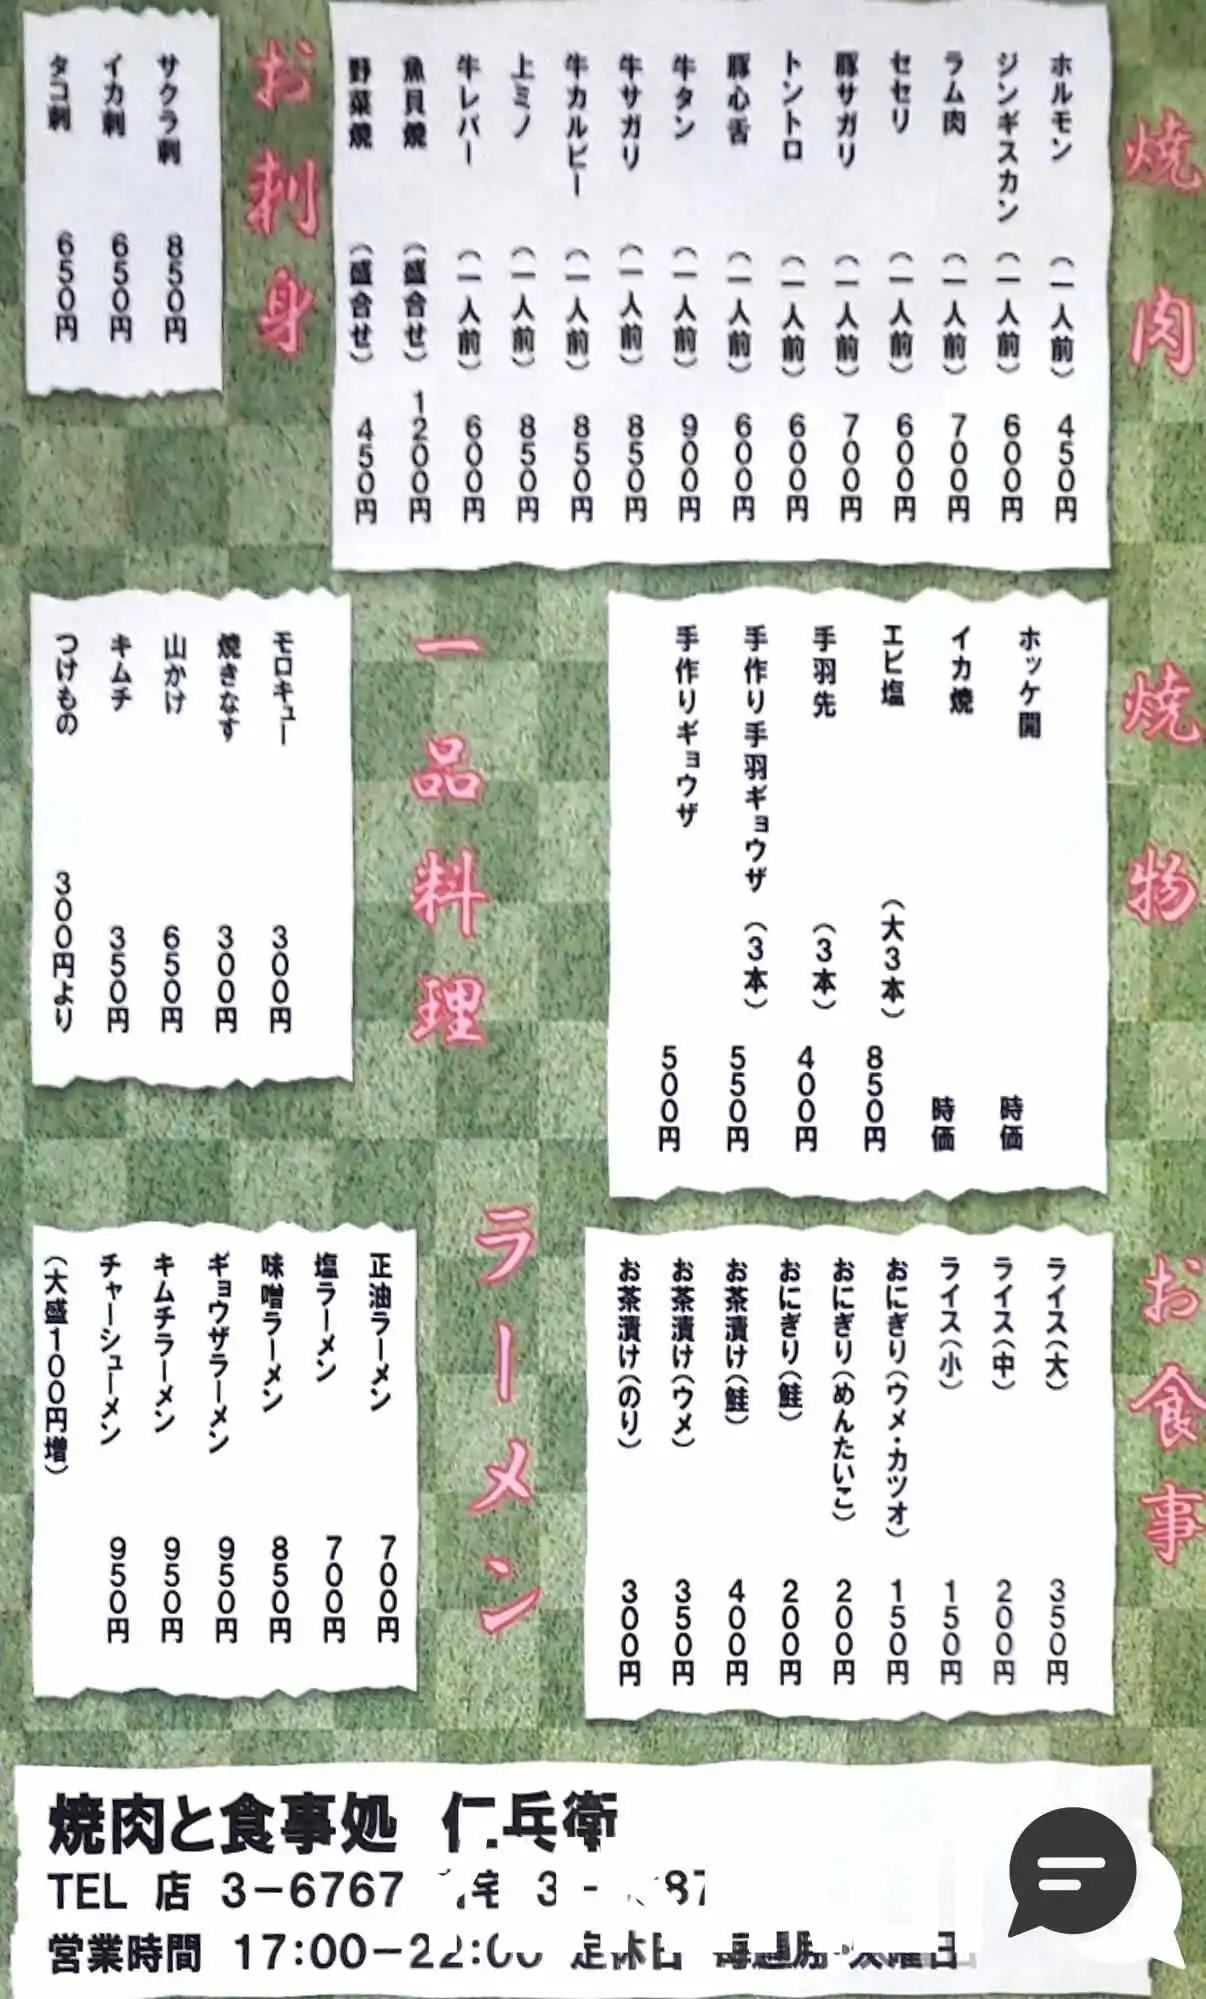 焼肉
ホルモン（一人前）450円
ジンギスカン（一人前）600円
ラム肉（一人前）700円
セセリ（一人前）600円
豚サガリ（一人前）700円
トントロ（一人前）600円
豚心舌（一人前）600円
牛タン（一人前）900円
牛サガリ（一人前）850円
牛カルビー（一人前）850円
上ミノ（一人前）850円
牛レバー（一人前）600円
魚貝焼（盛合せ）1200円
野菜焼（盛合せ）450円
お刺身
サクラ刺 850円
イカ刺 650円
タコ刺 650円
焼物
ホッケ開 時価
イカ焼 時価
エビ塩（大3本）850円
手羽先（3本）400円
手作り手羽ギョウザ（3本）550円
手作りギョウザ 500円
一品料理
モロキュー 300円
焼きなす 300円
山かけ 650円
キムチ 350円
つけもの 300円より
お食事
ライス（大）350円
ライス（中）200円
ライス（小）150円
おにぎり（ウメ・カツオ）150円
おにぎり（めんたいこ）200円
おにぎり（鮭）200円
お茶漬け（鮭）400円
お茶漬け（ウメ）350円
お茶漬け（のり）300円
ラーメン
正油ラーメン 700円
塩ラーメン 700円
味噌ラーメン 850円
ギョウザラーメン 950円
キムチラーメン 950円
チャーシューメン 950円
（大盛100円増）
焼肉と食事処 仁兵衛
TEL 店 3-6767
営業時間 17:00-22:00 定休日